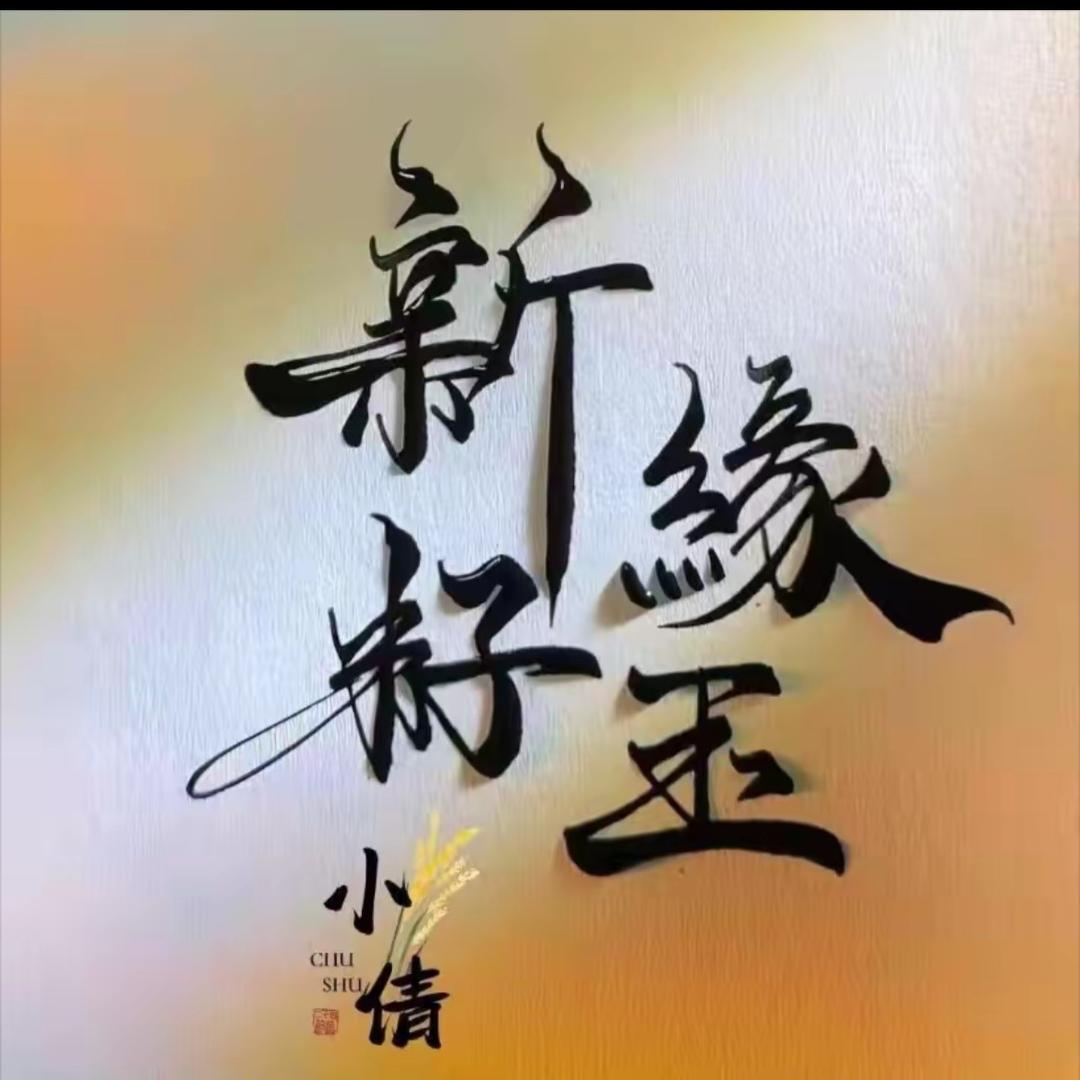 新緣
籽玉
小倩
CHU
SHU